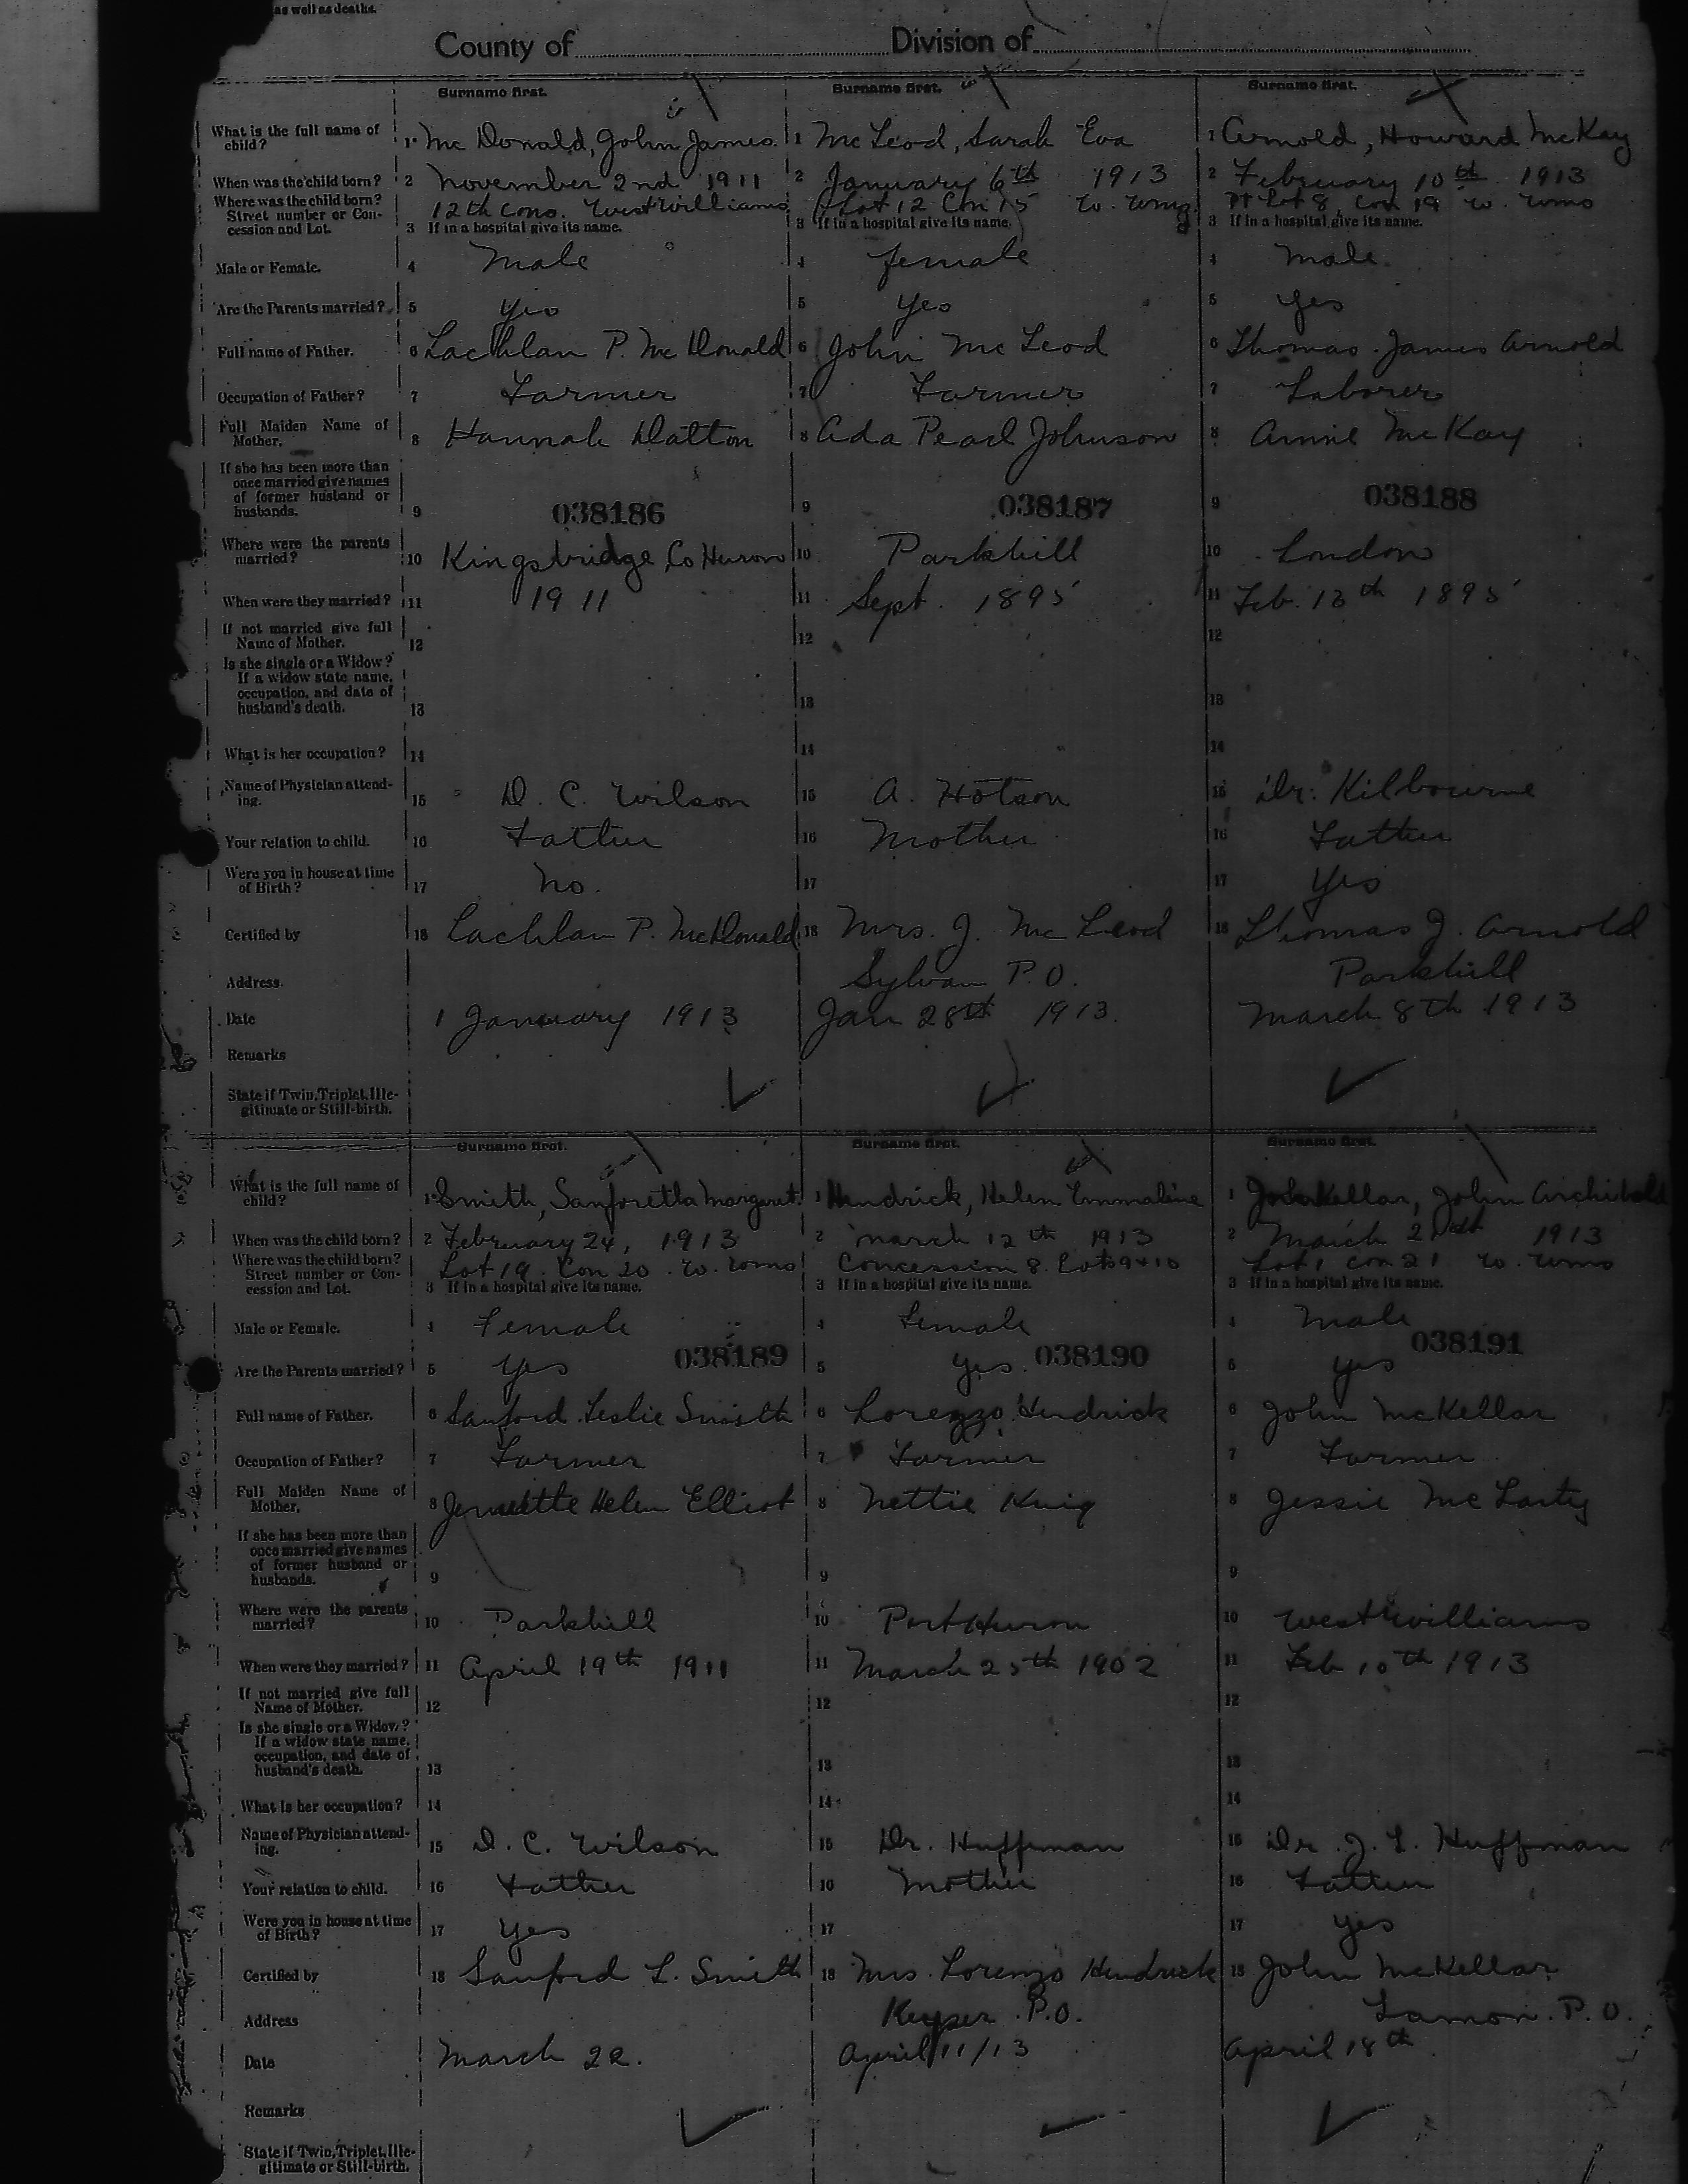 as well as deaths.
County of Division of
Surname first. Surname first. Surname first.
What is the full name of child? 1 Mc Donald, John James. 1 Mc Leod, Sarah Eva 1 Arnold, Howard McKay
When was the child born? 2 November 2nd 1911 2 January 6th 1913 2 February 10th 1913
Where was the child born? 12th Cons. West Williams Lot 12 Con 15 W. Wms. Pt Lot 8, Con 19 W. Wms
Street number or Concession and Lot. 3 If in a hospital give its name. 3 If in a hospital give its name. 3 If in a hospital give its name.
Male or Female. 4 Male 4 female 4 Male.
Are the Parents married? 5 Yes 5 Yes 5 Yes
Full name of Father. 6 Lachlan P. Mc Donald 6 John Mc Leod 6 Thomas James Arnold
Occupation of Father? 7 Farmer 7 Farmer 7 Laborer
Full Maiden Name of Mother. 8 Hannah Dalton 8 Ada Pearl Johnson 8 Annie McKay
If she has been more than once married give names of former husband or husbands. 9 038186 9 038187 9 038188
Where were the parents married? 10 Kingsbridge Co Huron 10 Parkhill 10 London
When were they married? 11 1911 11 Sept. 1895 11 Feb. 13th 1895
If not married give full Name of Mother. 12 12 12
Is she single or a Widow? If a widow state name, occupation, and date of husband's death. 13 13 13
What is her occupation? 14 14 14
Name of Physician attending. 15 D. C. Wilson 15 A. Hotson 15 Dr. Kilbourne
Your relation to child. 16 Father 16 Mother 16 Father
Were you in house at time of Birth? 17 No. 17 17 Yes
Certified by 18 Lachlan P. McDonald 18 Mrs. J. Mc Leod 18 Thomas J. Arnold
Address. Sylvan P.O. Parkhill
Date 1 January 1913 Jan 28th 1913. March 8th 1913
Remarks
State if Twin, Triplet, Illegitimate or Still-birth.
Surname first. Surname first. Surname first.
What is the full name of child? 1 Smith, Sanforetta Margaret 1 Hendrick, Helen Emmaline 1 McKellar, John Archibald
When was the child born? 2 February 24, 1913 2 March 12th 1913 2 March 1913
Where was the child born? Lot 19 Con 20 W. Wms Concession 8 Lots 9 & 10 Lot 1 con 21 W. Wms
Street number or Concession and Lot. 3 If in a hospital give its name. 3 If in a hospital give its name. 3 If in a hospital give its name.
Male or Female. 4 Female 4 Female 4 Male
Are the Parents married? 5 Yes 038189 5 Yes. 038190 5 yes 038191
Full name of Father. 6 Sanford Leslie Smith 6 Lorenzo Hendrick 6 John McKellar
Occupation of Father? 7 Farmer 7 Farmer 7 Farmer
Full Maiden Name of Mother. 8 Helen Elliot 8 Nettie King 8 Jessie McLarty
If she has been more than once married give names of former husband or husbands. 9 9 9
Where were the parents married? 10 Parkhill 10 Port Huron 10 West Williams
When were they married? 11 April 19th 1911 11 March 25th 1902 11 Feb 10th 1913
If not married give full Name of Mother. 12 12 12
Is she single or a Widow? If a widow state name, occupation, and date of husband's death. 13 13 13
What is her occupation? 14 14 14
Name of Physician attending. 15 D. C. Wilson 15 Dr. Huffman 15 Dr. J. L. Huffman
Your relation to child. 16 Father 16 Mother 16 Father
Were you in house at time of Birth? 17 Yes 17 17 yes
Certified by 18 Sanford L. Smith 18 Mrs. Lorenzo Hendrick 18 John McKellar
Address Keyser P.O. Lamon P.O.
Date March 22. April 11/13 April 18th
Remarks
State if Twin, Triplet, Illegitimate or Still-birth.